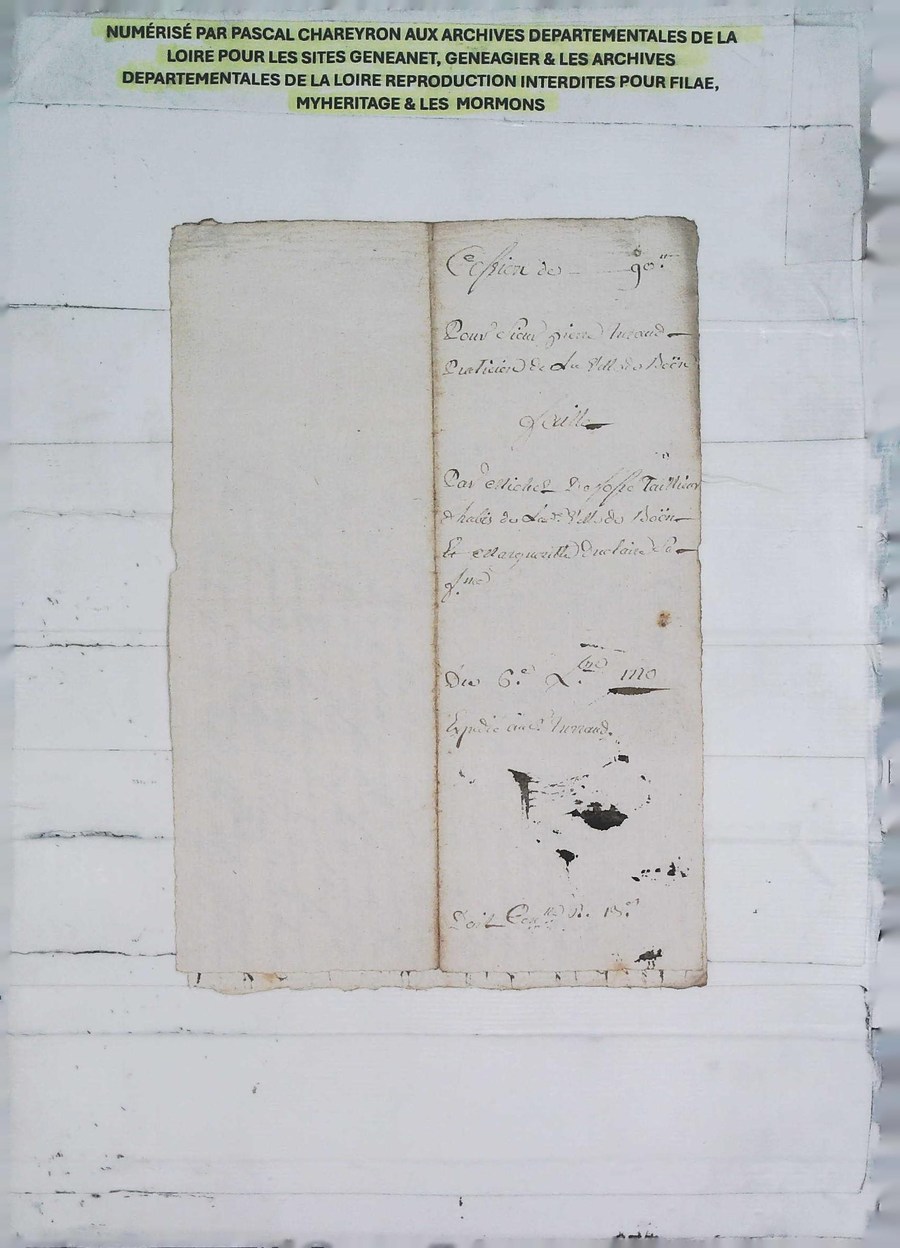 NUMÉRISÉ PAR PASCAL CHAREYRON AUX ARCHIVES DEPARTEMENTALES DE LA
LOIRE POUR LES SITES GENEANET, GENEAGIER & LES ARCHIVES
DEPARTEMENTALES DE LA LOIRE REPRODUCTION INTERDITES POUR FILAE,
MYHERITAGE & LES MORMONS
Cession de 90ᵗᵗ
Pour Sieur pierre
Praticien de La Ville de Boën
Par Michel Tailleur
d'habis de Lad. Ville de Boën
Et Margueritte Duclaire Sa
fme
Du 6.e
Expedié au Sr
Doit